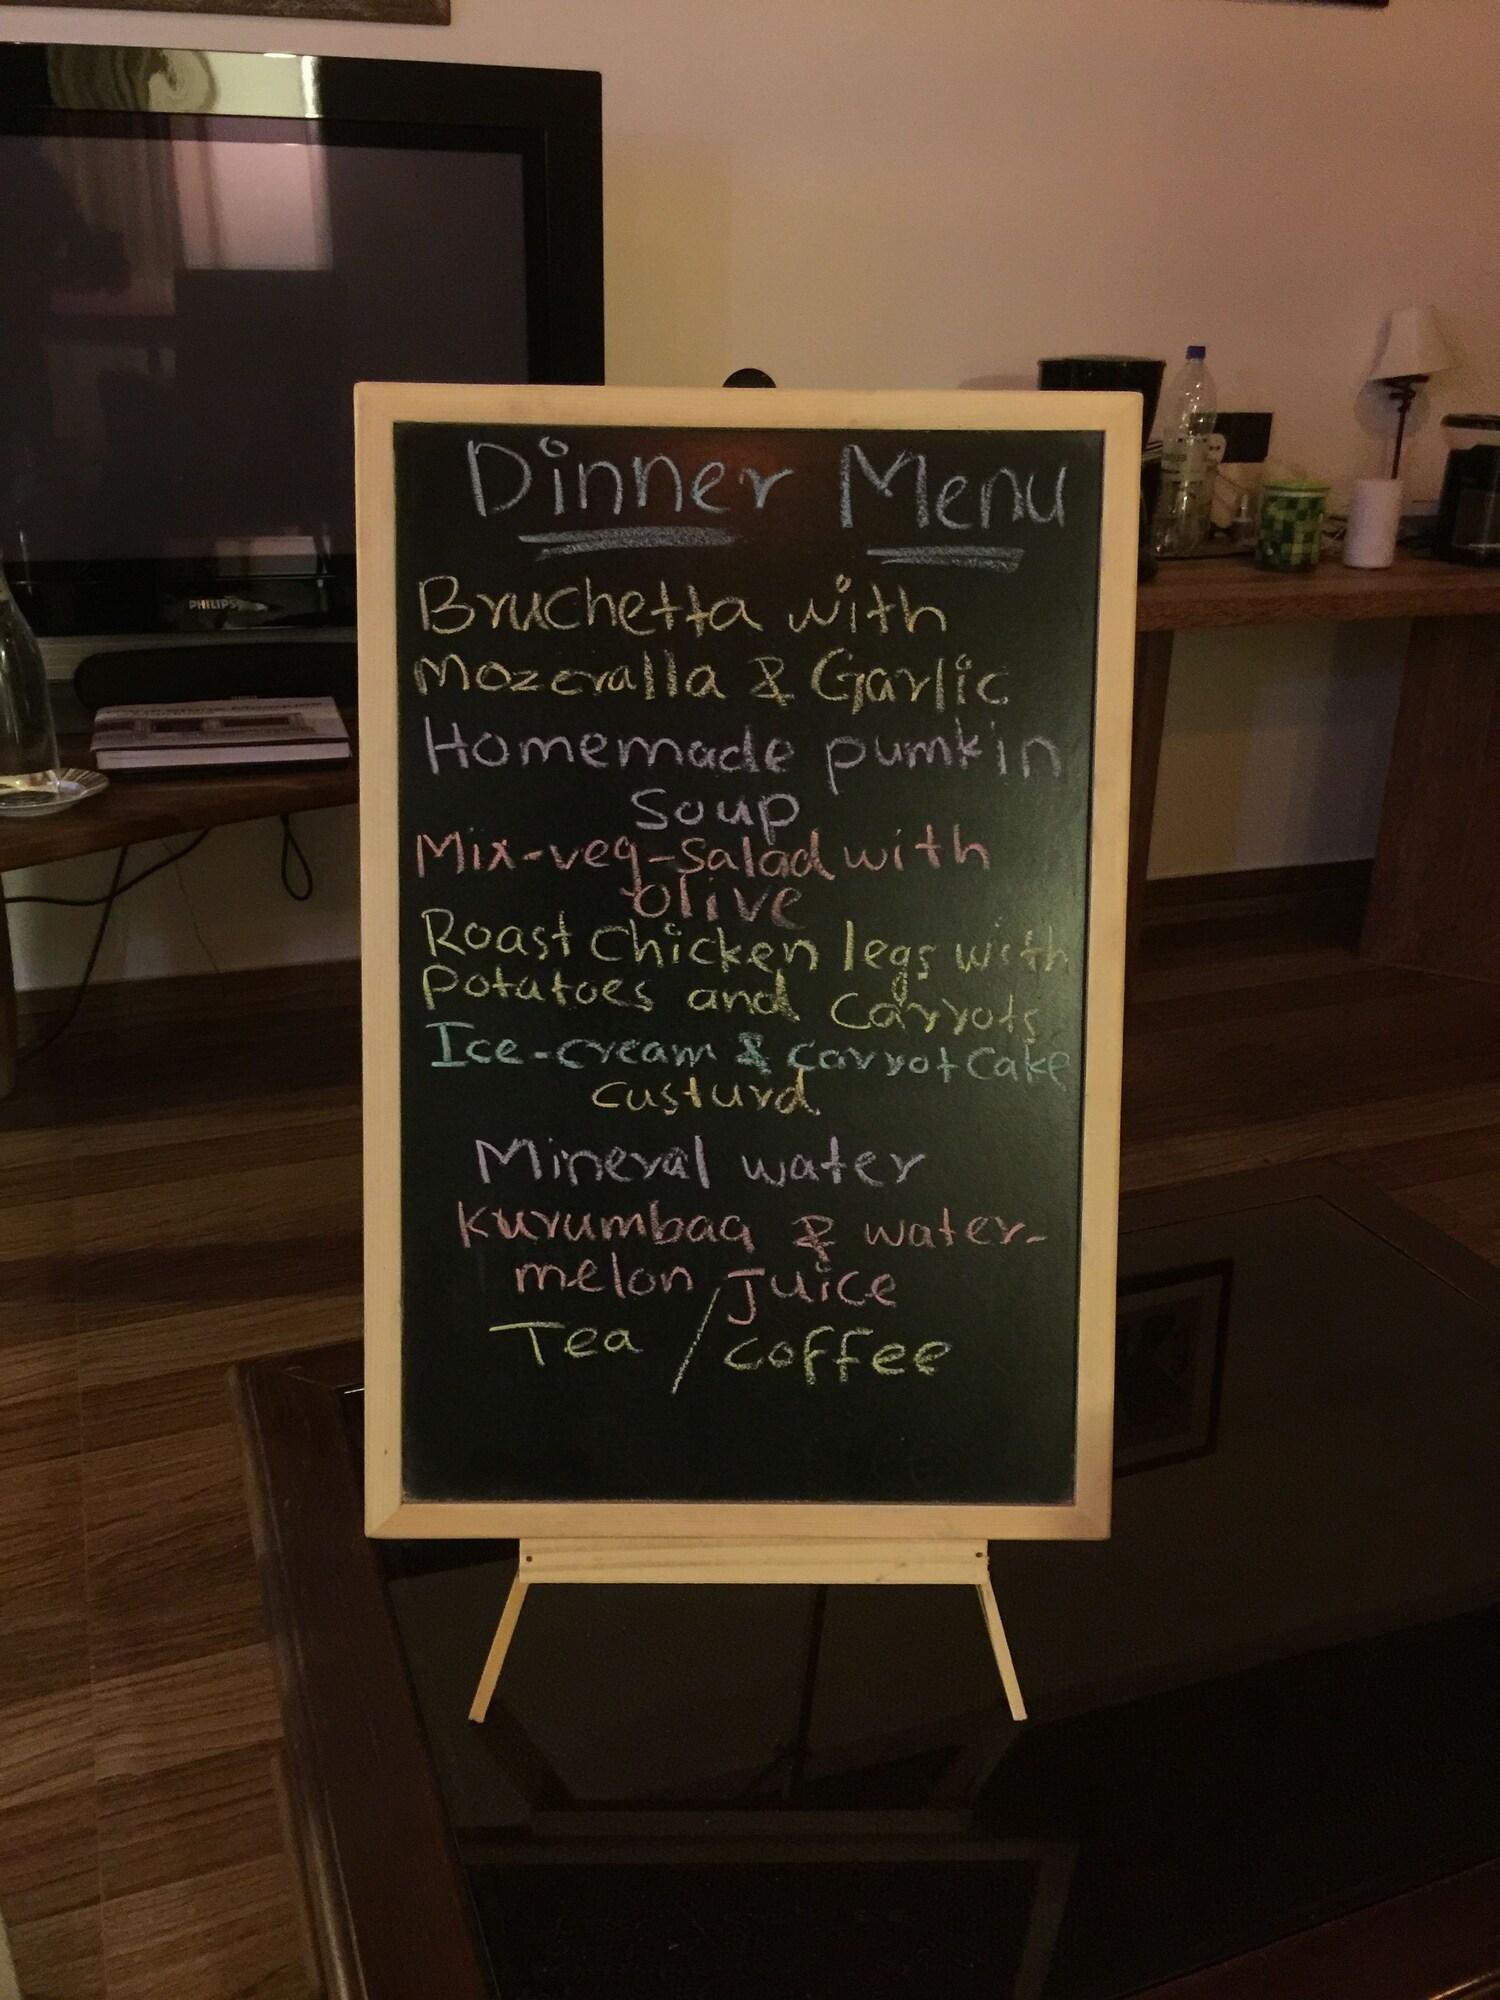 Dinner Menu
Bruchetta with
Mozeralla & Garlic
Homemade pumkin
soup
Mix-veg-Salad with
olive
Roast Chicken legs with
potatoes and Carrots
Ice-cream & carrot Cake
custurd
Mineral water
Kurumbaa & water-
melon Juice
Tea / coffee
PHILIPS